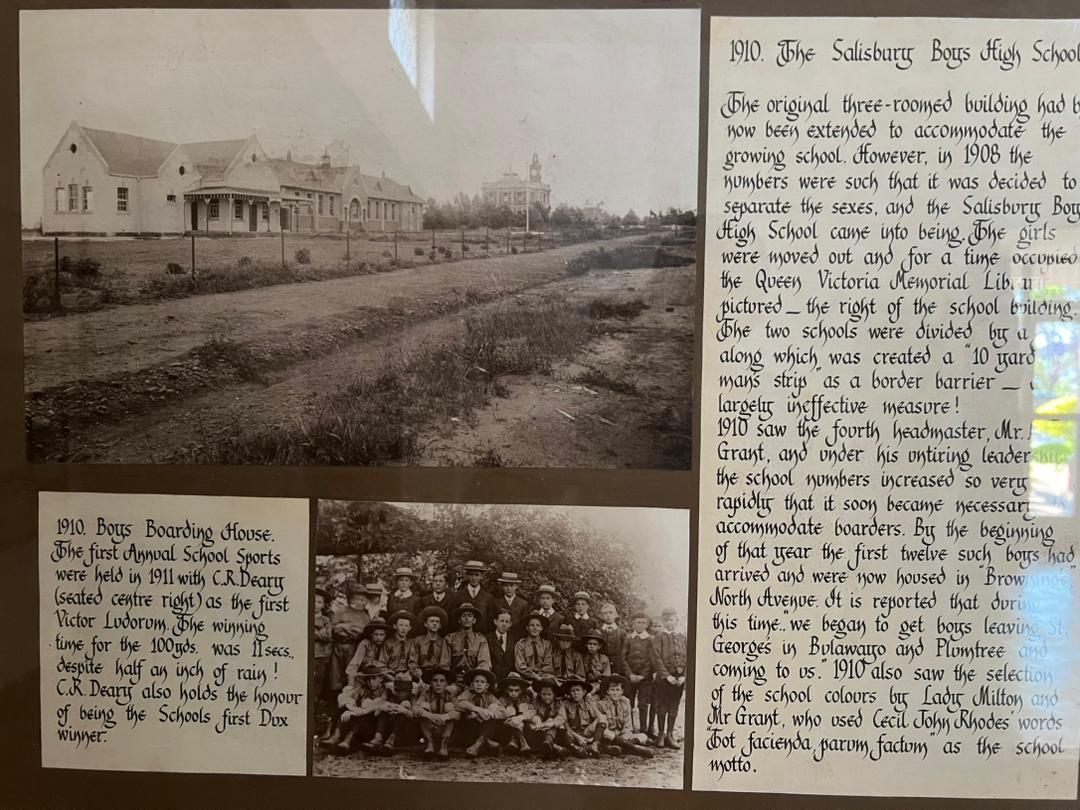 1910. The Salisbury Boys High School
The original three-roomed building had
now been extended to accommodate the
growing school. However, in 1908 the
numbers were such that it was decided to
separate the sexes, and the Salisbury Boys
High School came into being. The girls
were moved out and for a time occupied
the Queen Victoria Memorial Library
pictured _ the right of the school building.
The two schools were divided by a
along which was created a "10 yard
man's strip" as a border barrier —
largely ineffective measure!
1910 saw the fourth headmaster, Mr.
Grant, and under his untiring leadership
the school numbers increased so very
rapidly that it soon became necessary to
accommodate boarders. By the beginning
of that year the first twelve such boys had
arrived and were now housed in "Browning's",
North Avenue. It is reported that during
this time.."we began to get boys leaving St.
Georges in Bulawayo and Plumtree and
coming to us." 1910 also saw the selection
of the school colours by Lady Milton and
Mr Grant, who used Cecil John Rhodes' words
"Tot facienda parum factum" as the school
motto.
1910. Boys Boarding House.
The first Annual School Sports
were held in 1911 with C.R.Deary
(seated centre right) as the first
Victor Ludorum. The winning
time for the 100yds. was 11secs.,
despite half an inch of rain!
C.R.Deary also holds the honour
of being the Schools first Dux
winner.